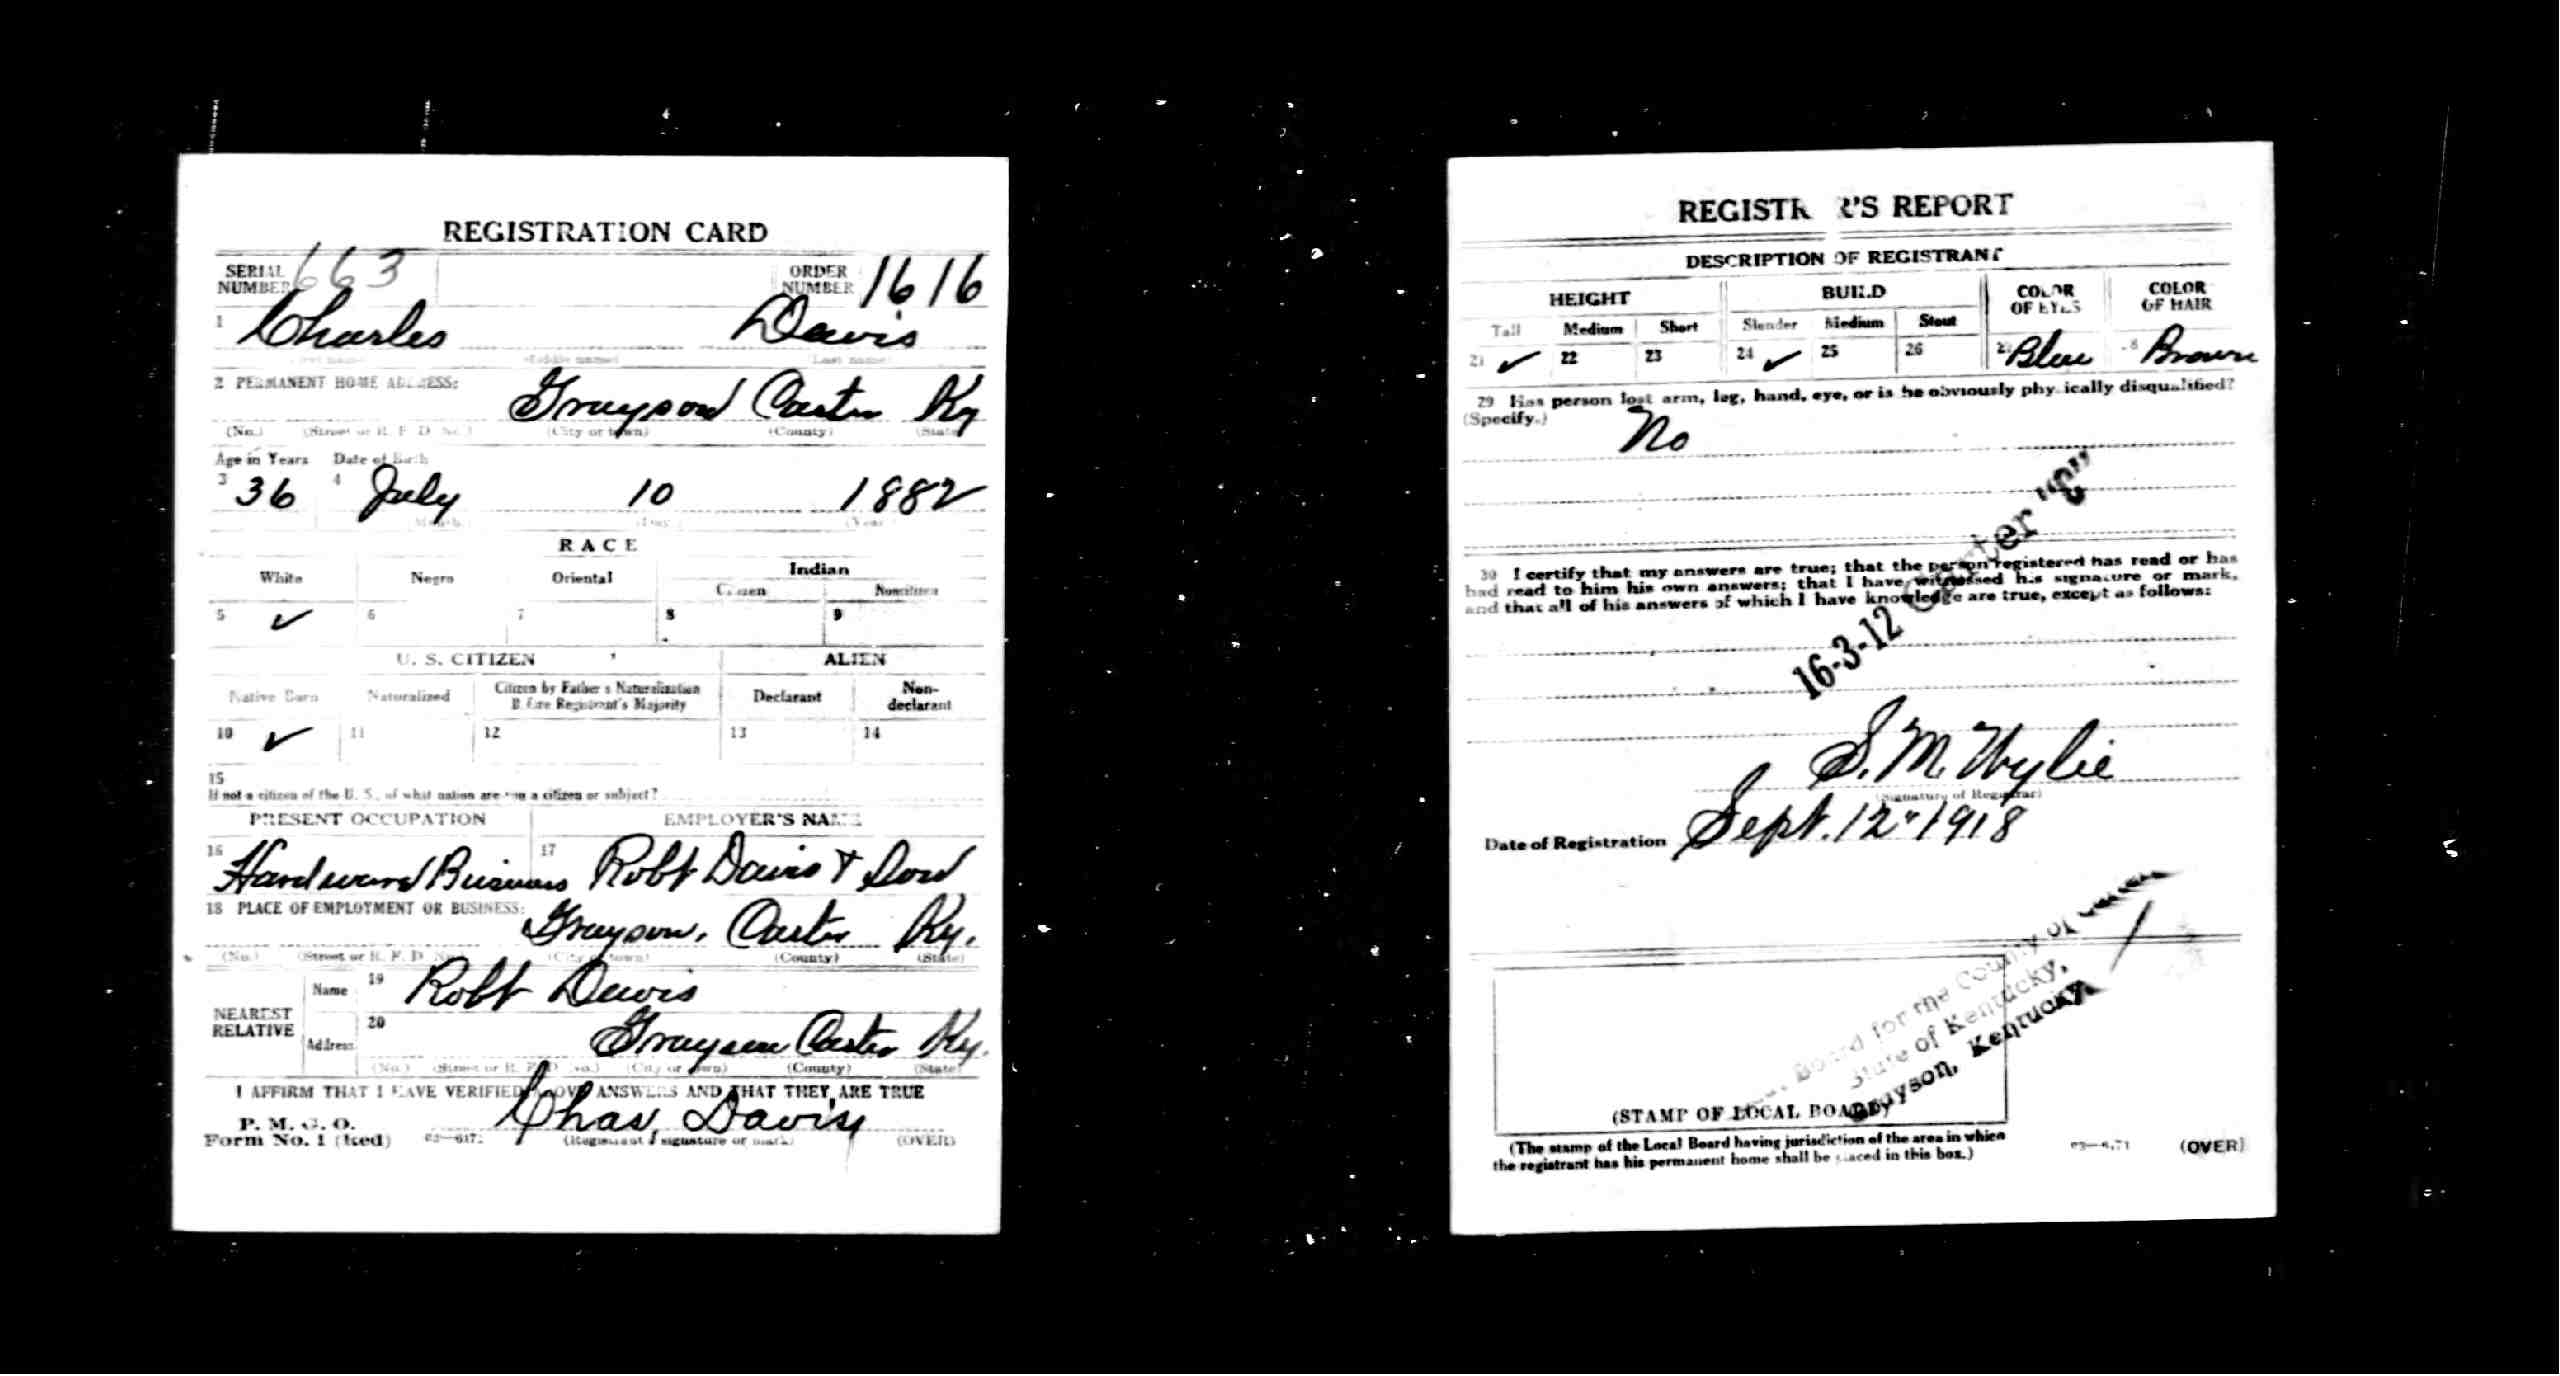 REGISTRATION CARD
SERIAL NUMBER 663
ORDER NUMBER 1616
1 Charles Davis
(Middle name) (Last name)
2 PERMANENT HOME ADDRESS:
Grayson Carter Ky
(No.) (Street or R. F. D. No.) (City or town) (County) (State)
Age in Years Date of Birth
3 36 4 July 10 1882
(Month) (Day) (Year)
RACE
White Negro Oriental Indian
Citizen Noncitizen
5 ✓ 6 7 8 9
U. S. CITIZEN ALIEN
Native Born Naturalized Citizen by Father's Naturalization Before Registrant's Majority Declarant Non-declarant
10 ✓ 11 12 13 14
15
If not a citizen of the U. S., of what nation are you a citizen or subject?
PRESENT OCCUPATION EMPLOYER'S NAME
16 Hardware Business 17 Robt Davis & Son
18 PLACE OF EMPLOYMENT OR BUSINESS:
Grayson, Carter Ky.
(No.) (Street or R. F. D. No.) (City or town) (County) (State)
NEAREST RELATIVE
Name 19 Robt Davis
Address 20 Grayson Carter Ky.
(No.) (Street or R. F. D. No.) (City or town) (County) (State)
I AFFIRM THAT I HAVE VERIFIED ABOVE ANSWERS AND THAT THEY ARE TRUE
P. M. G. O.
Form No. 1 (Red) Chas. Davis
(Registrant's signature or mark) (OVER)
REGISTRAR'S REPORT
DESCRIPTION OF REGISTRANT
HEIGHT BUILD COLOR OF EYES COLOR OF HAIR
Tall Medium Short Slender Medium Stout
21 ✓ 22 23 24 ✓ 25 26 27 Blue 28 Brown
29 Has person lost arm, leg, hand, eye, or is he obviously physically disqualified?
(Specify.) No
30 I certify that my answers are true; that the person registered has read or has
had read to him his own answers; that I have witnessed his signature or mark,
and that all of his answers of which I have knowledge are true, except as follows:
16-3-12 Carter "C"
S. M. Wylie
(Signature of Registrar)
Date of Registration Sept. 12 - 1918
Board for the County of
State of Kentucky,
Grayson, Kentucky
(STAMP OF LOCAL BOARD)
(The stamp of the Local Board having jurisdiction of the area in which
the registrant has his permanent home shall be placed in this box.)
(OVER)